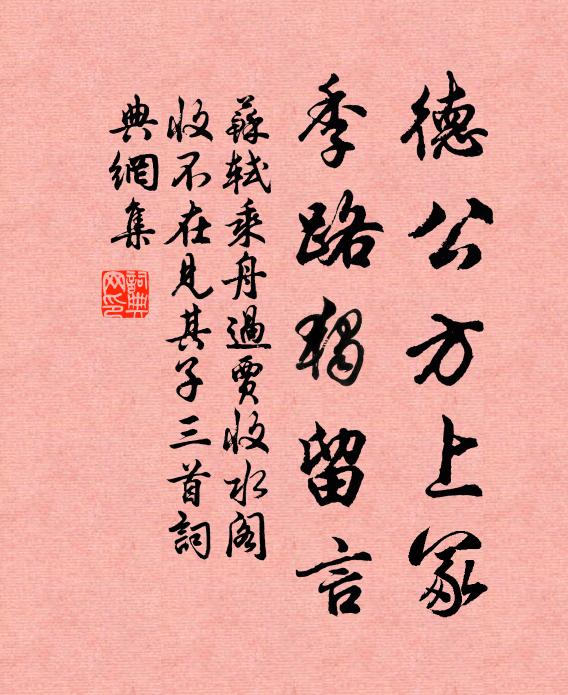 德公方上冢
季路獨留言
蘇軾乘舟過賈收水閣
收不在見其子三首詞
典網集
詞典
网印